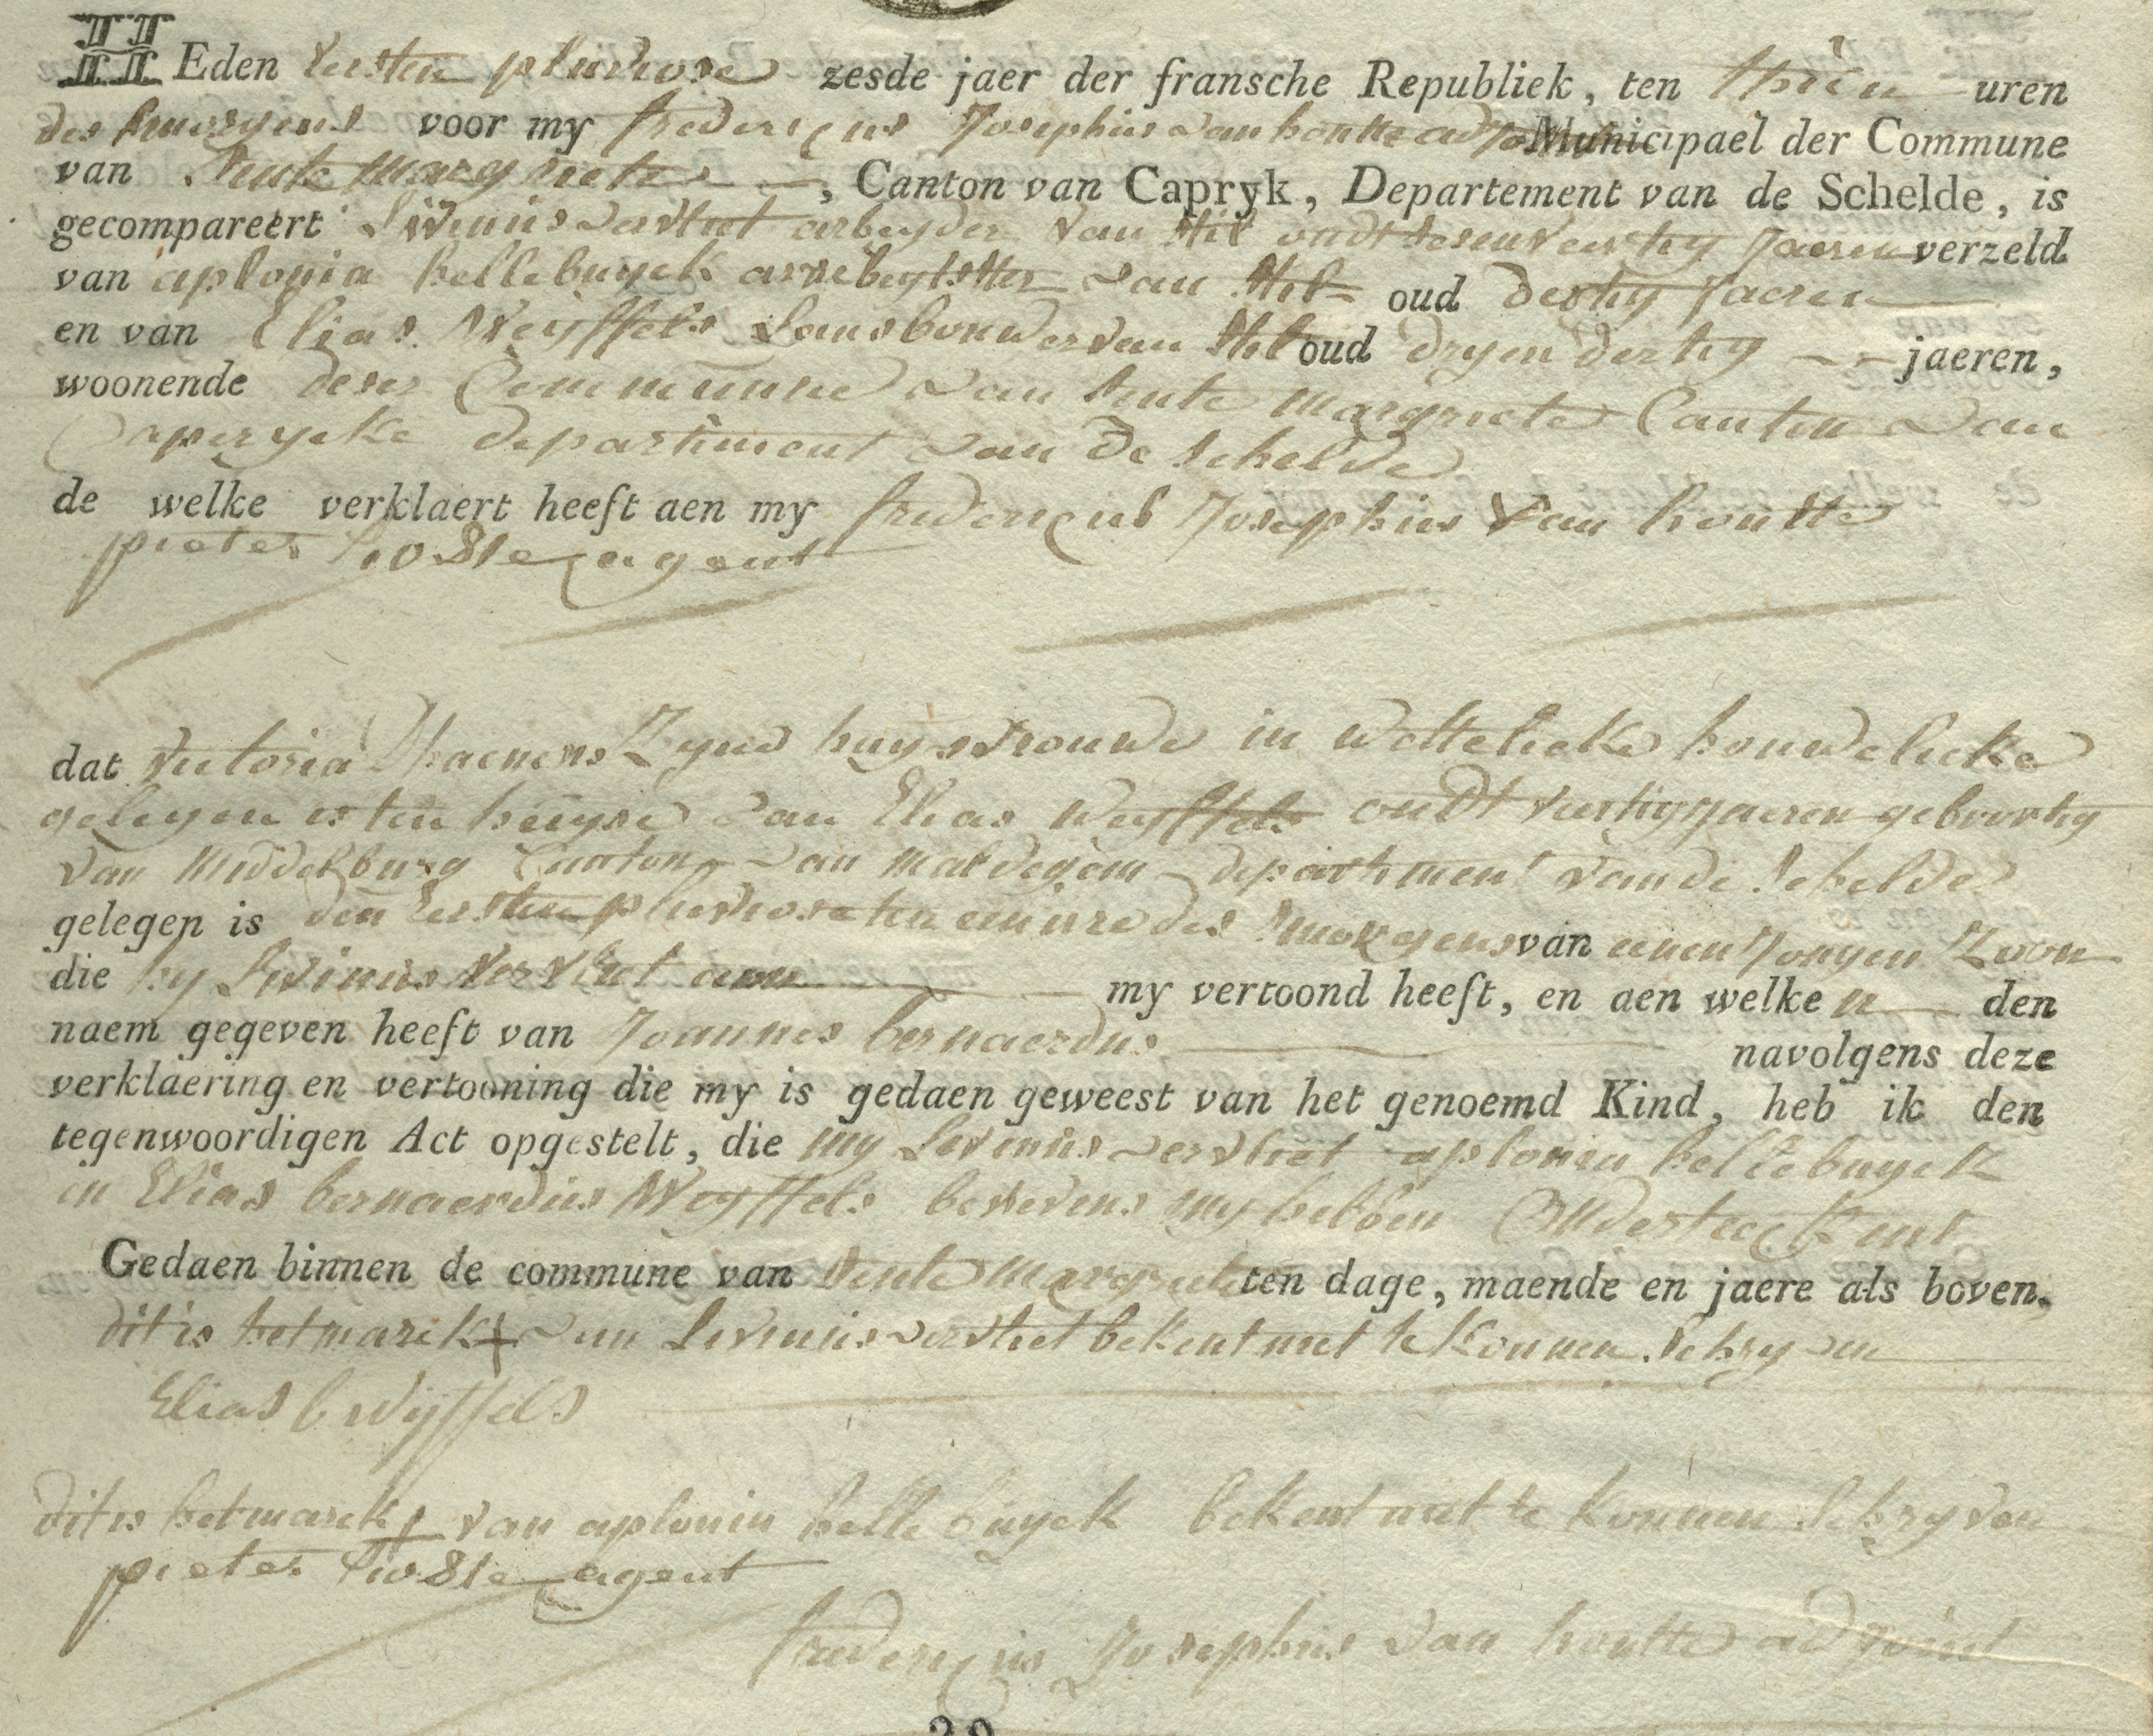 HEden Eersten pluviose zesde jaer der fransche Republiek, ten thien uren
des smorgens voor my fredericus Josephus van houtte adjoint Municipael der Commune
van Sente margriete, Canton van Capryk, Departement van de Schelde, is
gecompareert Livinus vervliet arbeyder van stil oudt sesenveertig Jaeren verzeld
van aplonia hellebuyck van stil oud dertig Jaeren
en van Elias Weyffels Lansbouwer van stil oud dryendertig jaeren,
woonende deser Commune van sente margriete Canton van
Caperycke departiment van de schelde
de welke verklaert heeft aen my fredericus Josephus Van houtte
pieter agent
dat victoria Dhaenens Zyne huysvrouwe in wettelicke houwelicke
gelegen is ten huyse van Elias Weyffels oudt veertig jaeren geboortig
van Middelburg Canton van Maldegem departiment van de Schelde
gelegen is den Eersten pluviose ten een ure des smorgens van eenen Jongen Zoon
die hy Livinus Vervliet aen my vertoond heeft, en aen welken den
naem gegeven heeft van Joannes bernaerdus navolgens deze
verklaering en vertooning die my is gedaen geweest van het genoemd Kind, heb ik den
tegenwoordigen Act opgestelt, die my Livinus vervliet aplonia hellebuyck
en Elias bernaerdus Weyffels bevevens my hebben Onderteeckent
Gedaen binnen de commune van Sente margriete ten dage, maende en jaere als boven.
dit is het marck + van Livinus vervliet bekent niet te konnen schryven
Elias b wyffels
dit is het marck + van aplonia hellebuyck bekent niet te konnen schryven
pieter agent
fredericus Josephus van houtte adjoint